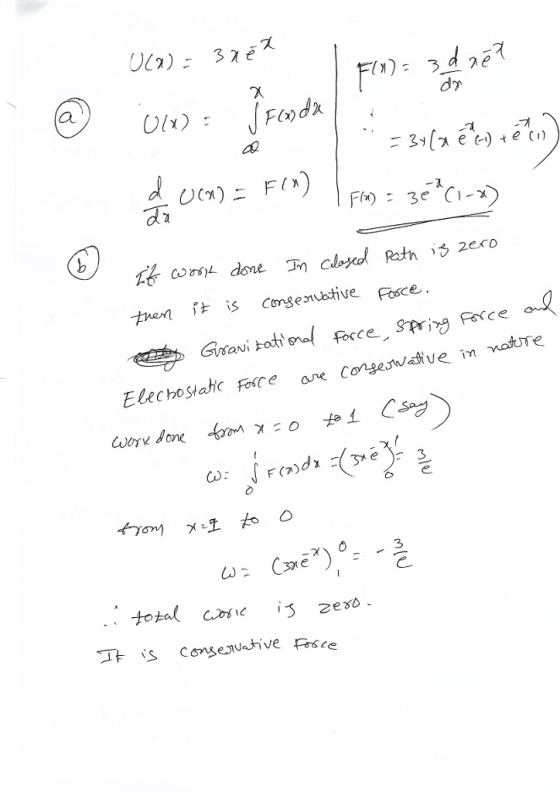 (a)
U(x) = 3xe^-x
U(x) = ∫_∞^x F(x)dx
d/dx U(x) = F(x)
F(x) = 3 d/dx xe^-x
∴ = 3×(x e^-x(-1) + e^-x(1))
F(x) = 3e^-x(1-x)
(b)
If work done In closed Path is zero
then it is conservative Force.
Gravitational Force, Spring Force and
Electrostatic Force are conservative in nature
work done from x = 0 to 1 (say)
W = ∫_0^1 F(x)dx = (3xe^-x)_0^1 = 3/e
from x=1 to 0
W = (3xe^-x)_1^0 = - 3/e
∴ total work is zero.
It is conservative Force